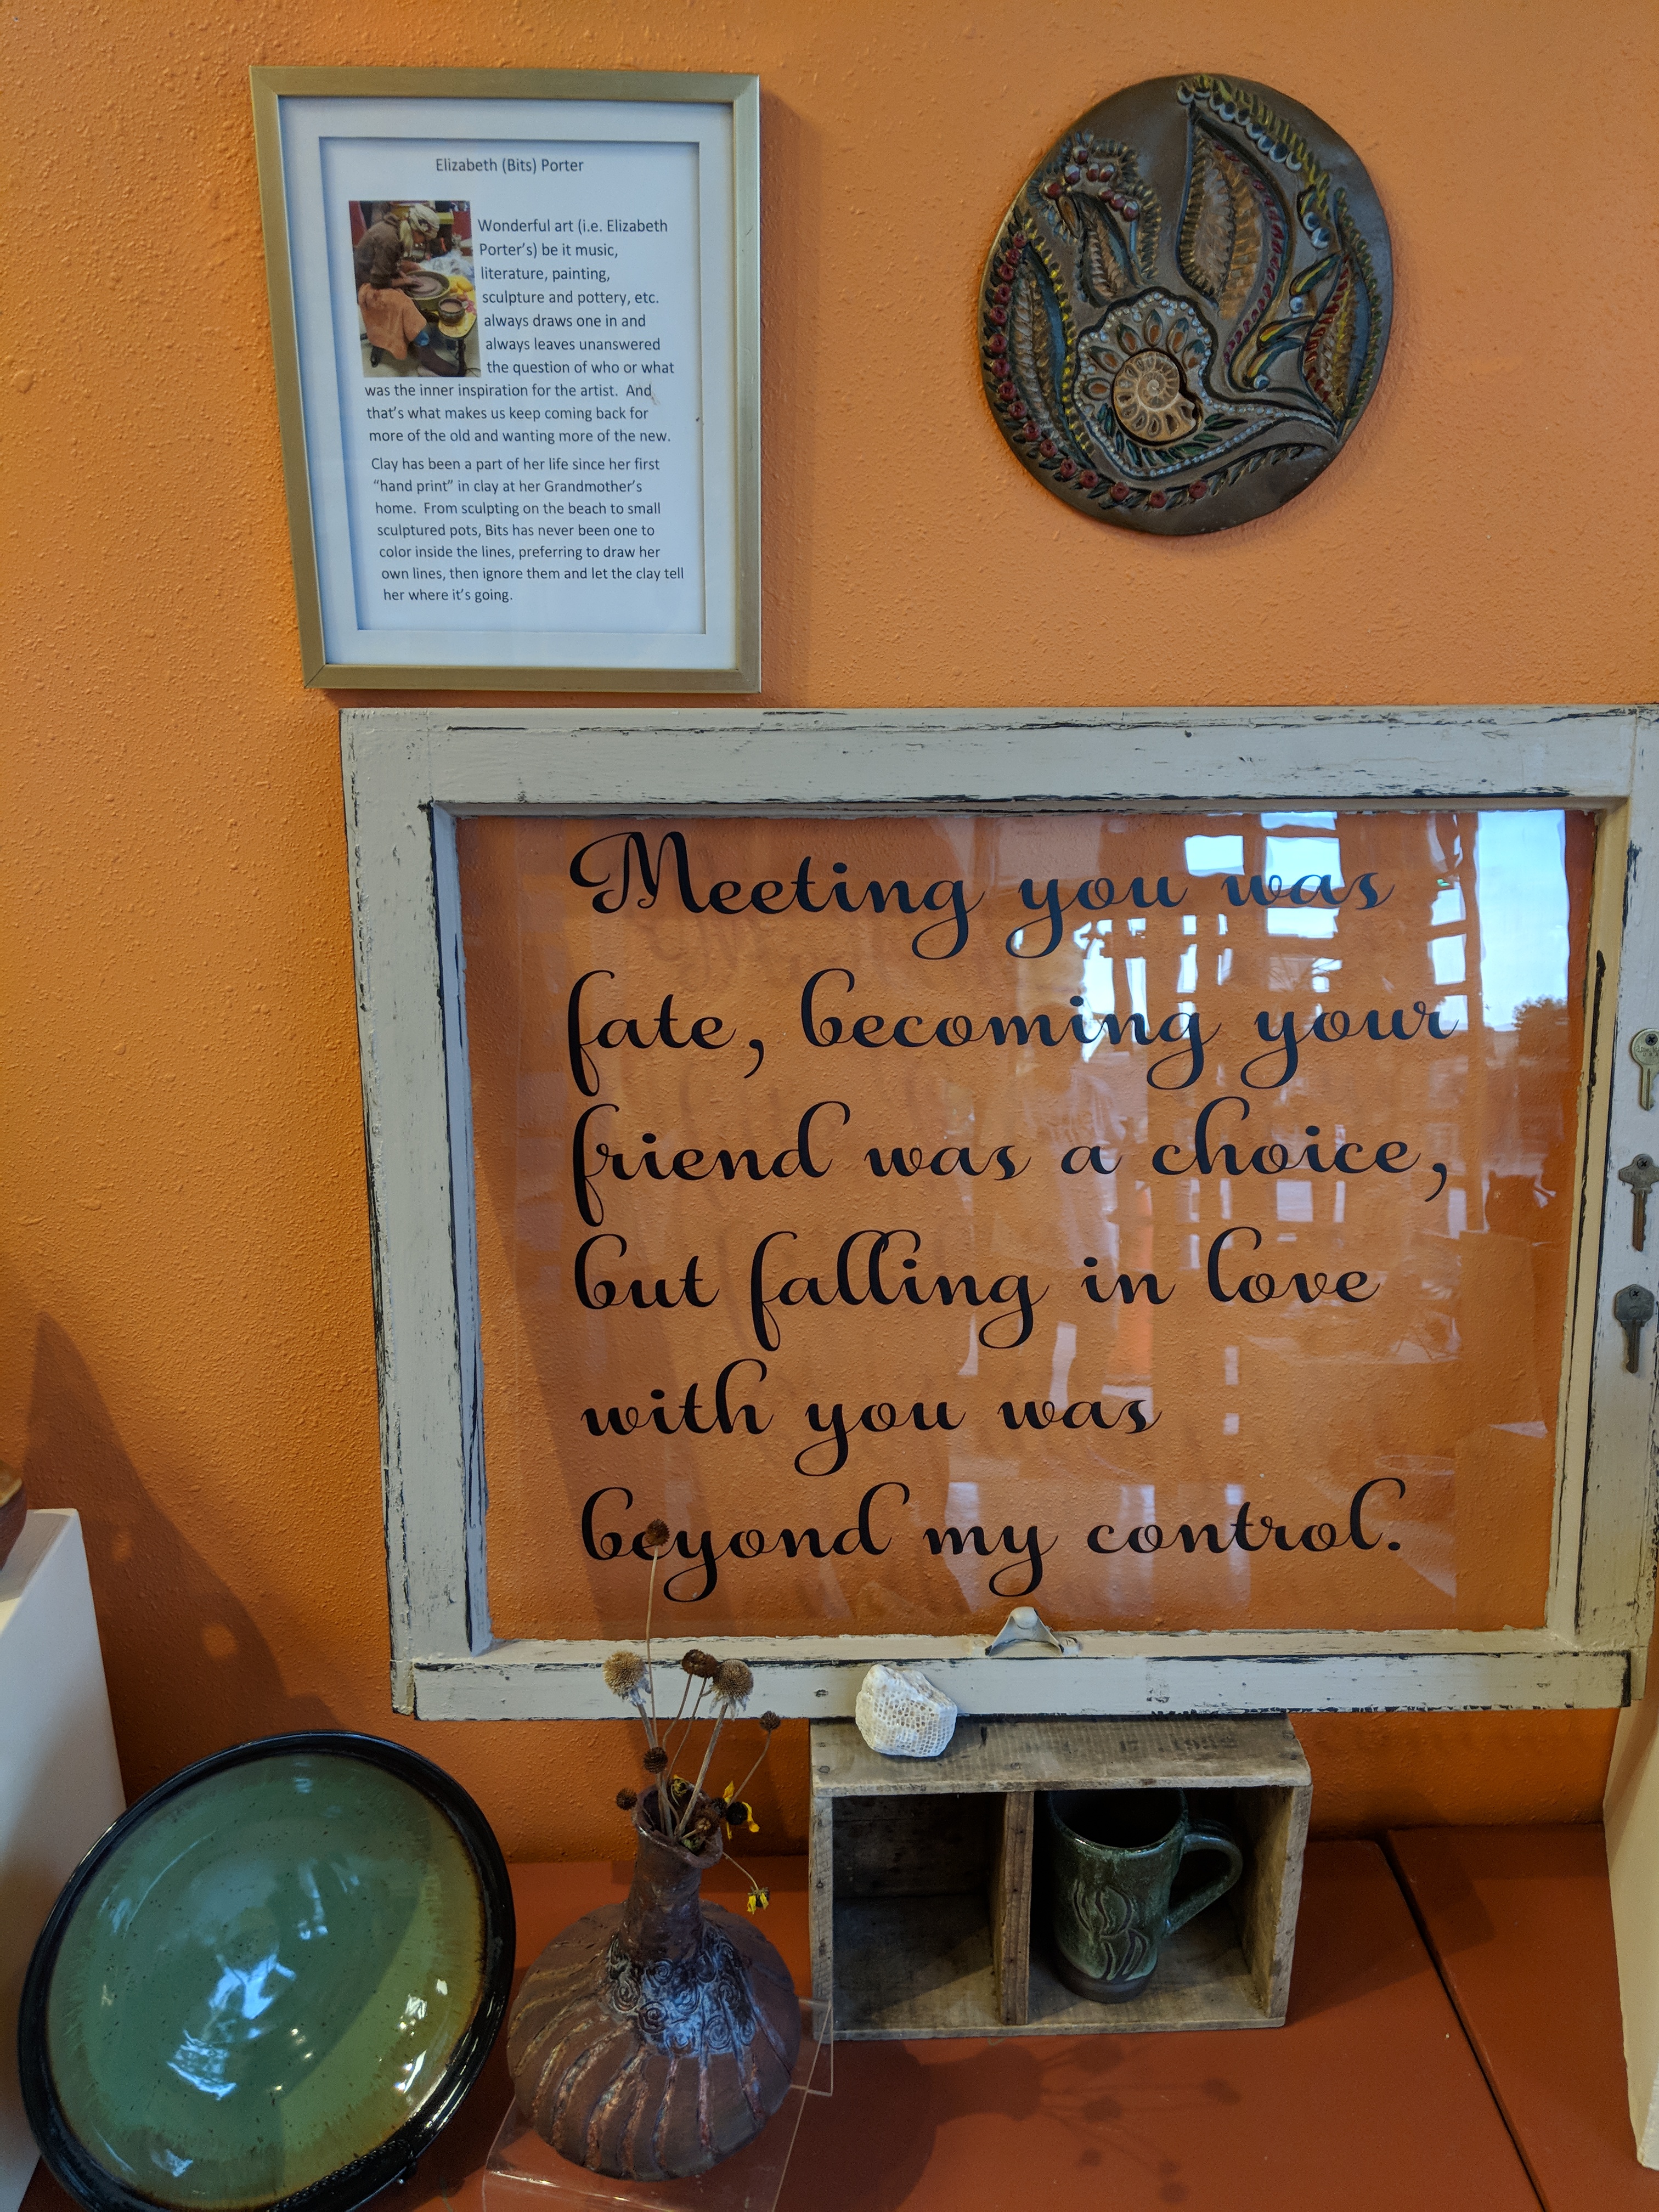 Elizabeth (Bits) Porter
Wonderful art (i.e. Elizabeth
Porter's) be it music,
literature, painting,
sculpture and pottery, etc.
always draws one in and
always leaves unanswered
the question of who or what
was the inner inspiration for the artist. And
that's what makes us keep coming back for
more of the old and wanting more of the new.
Clay has been a part of her life since her first
"hand print" in clay at her Grandmother's
home. From sculpting on the beach to small
sculptured pots, Bits has never been one to
color inside the lines, preferring to draw her
own lines, then ignore them and let the clay tell
her where it's going.
Meeting you was
fate, becoming your
friend was a choice,
but falling in love
with you was
beyond my control.